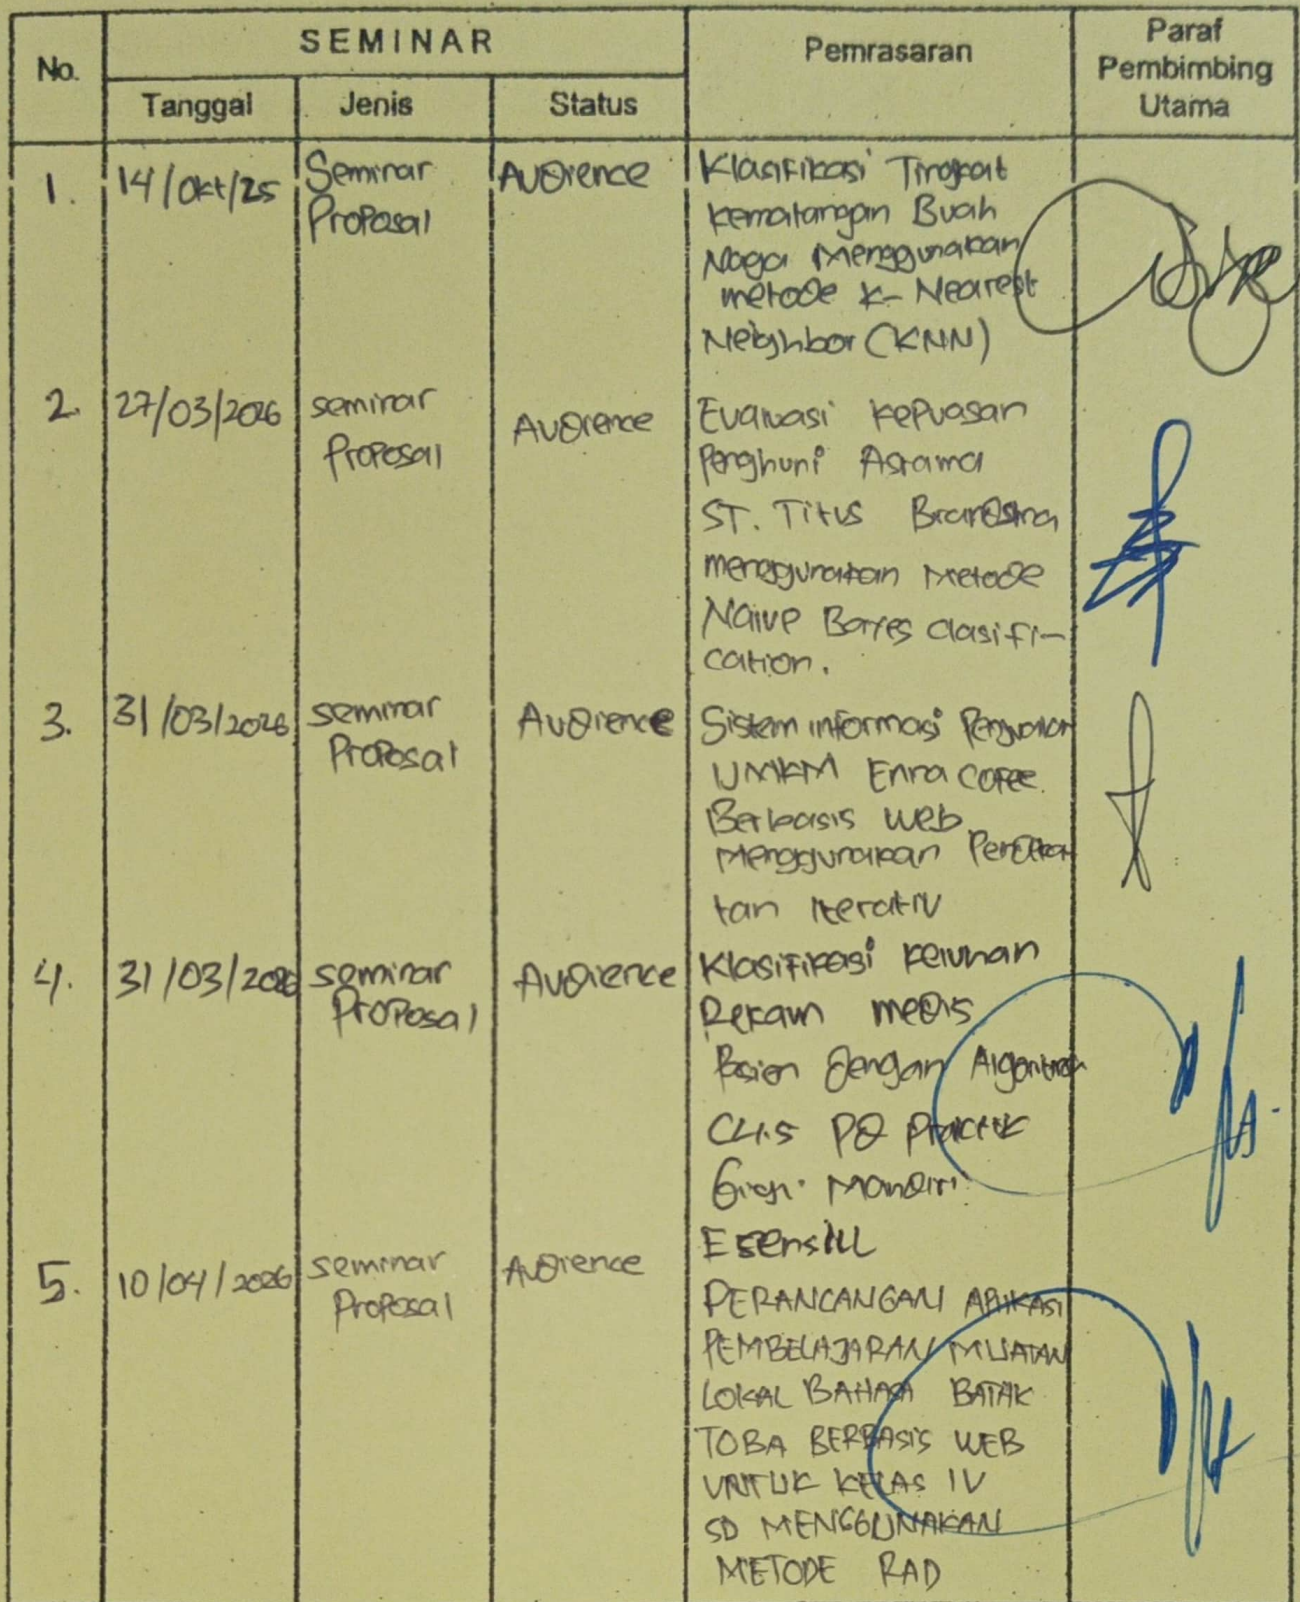 No.
SEMINAR
Pemrasaran
Paraf
Pembimbing
Utama
Tanggal
Jenis
Status
1.
14/Okt/25
Seminar
Proposal
Audience
Klasifikasi Tingkat
Kematangan Buah
Naga Menggunakan
metode K- Nearest
Neighbor (KNN)
2.
27/03/2026
seminar
Proposal
Audience
Evaluasi Kepuasan
Penghuni Asrama
ST. Titus Brandsma
menggunakan Metode
Naive Bayes Clasifi-
cation.
3.
31/03/2026
seminar
Proposal
Audience
Sistem informasi
UMKM Enra Coffee
Berbasis Web
Menggunakan
tan Iterativ
4.
31/03/2026
seminar
Proposal
Audience
Klasifikasi Keluhan
Rekam Medis
Pasien dengan Algoritma
C4.5 Pd Praktik
Gigi Mandiri
Esensill
5.
10/04/2026
seminar
Proposal
Audience
PERANCANGAN APLIKASI
PEMBELAJARAN MUATAN
LOKAL BAHASA BATAK
TOBA BERBASIS WEB
UNTUK KELAS IV
SD MENGGUNAKAN
METODE RAD